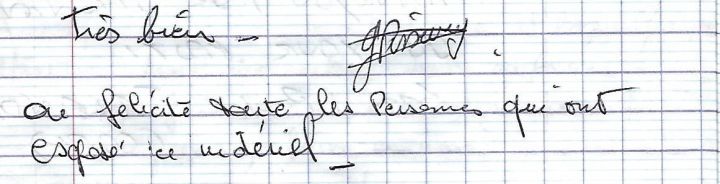 très bien -
on felicite toute les Personnes qui ont
exposé ce matériel -